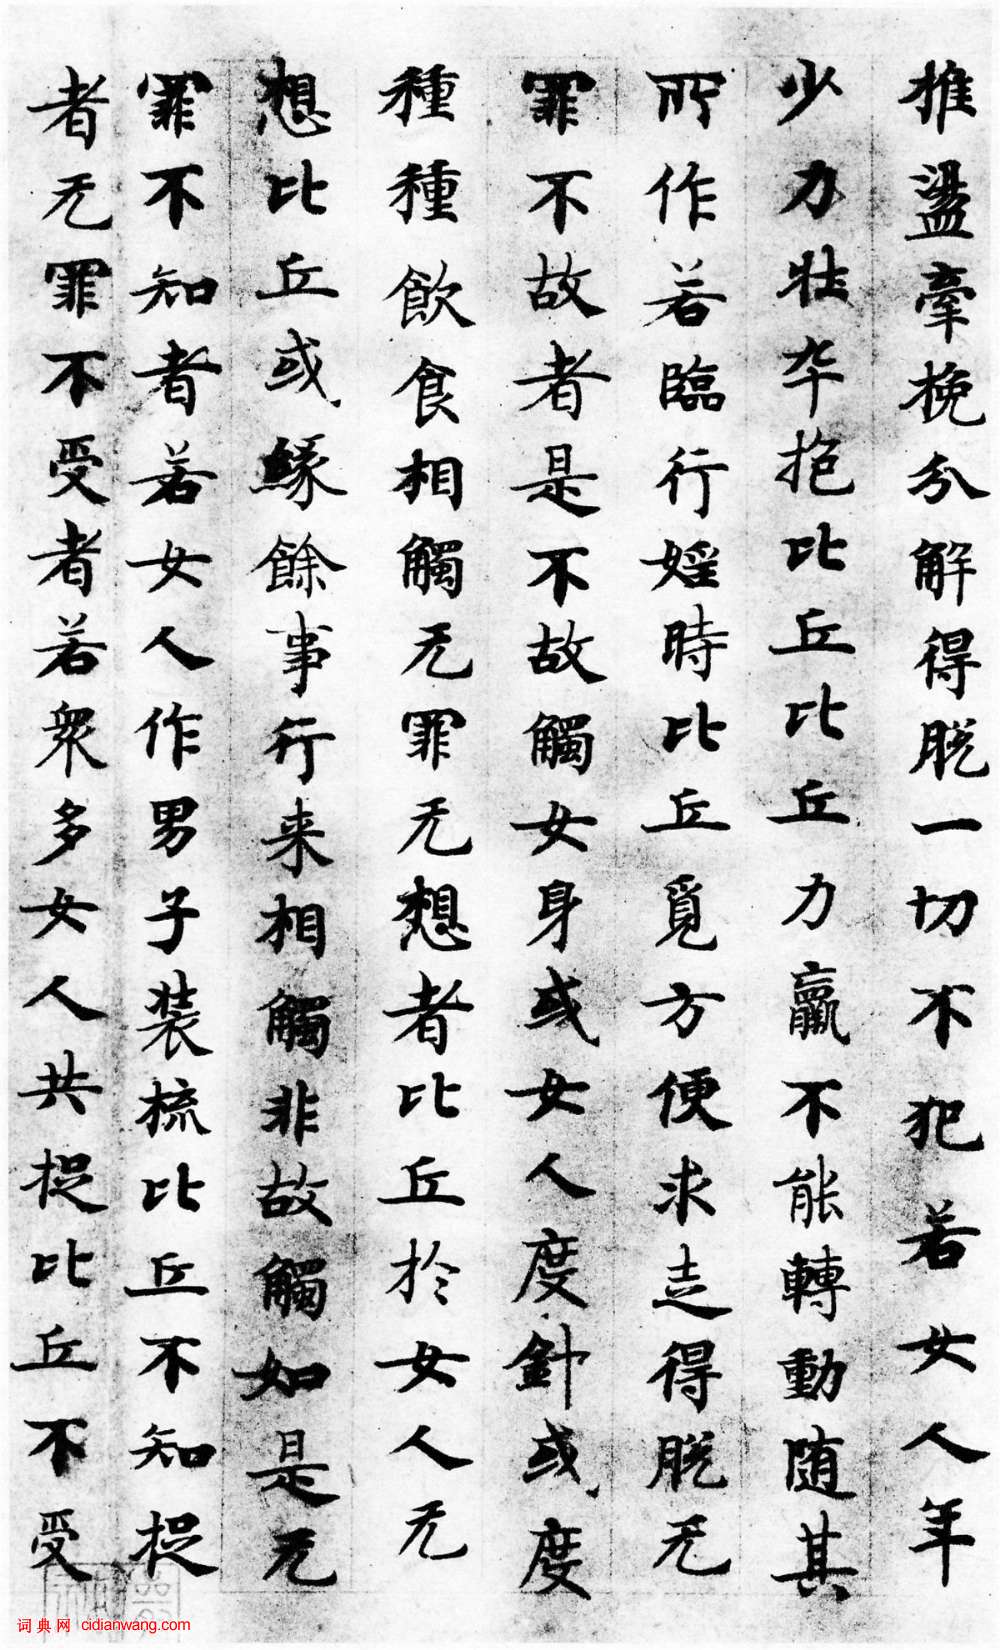 推盪牽挽分解得脱一切不犯若女人年
少力壯卒抱比丘比丘力羸不能轉動随其
所作若臨行婬時比丘覓方便求走得脱无
罪不故者是不故觸女身或女人度針或度
種種飲食相觸无罪无想者比丘於女人无
想比丘或緣餘事行来相觸非故觸如是无
罪不知者若女人作男子装梳比丘不知捉
者无罪不受者若衆多女人共捉比丘不受
词典网 cidianwang.com